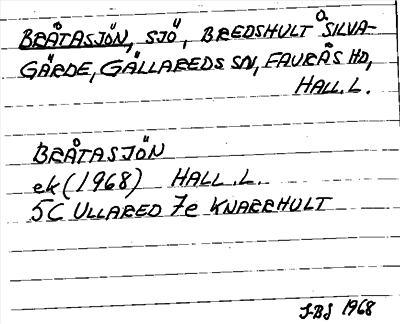 BRÅTASJÖN, SJÖ, BREDSHULT O SILVA-
GÄRDE, GÄLLAREDS SN, FAURÅS HD,
HALL.L.
BRÅTASJÖN
ek (1968) HALL.L.
5C ULLARED 7e KNARRHULT
SBS 1968